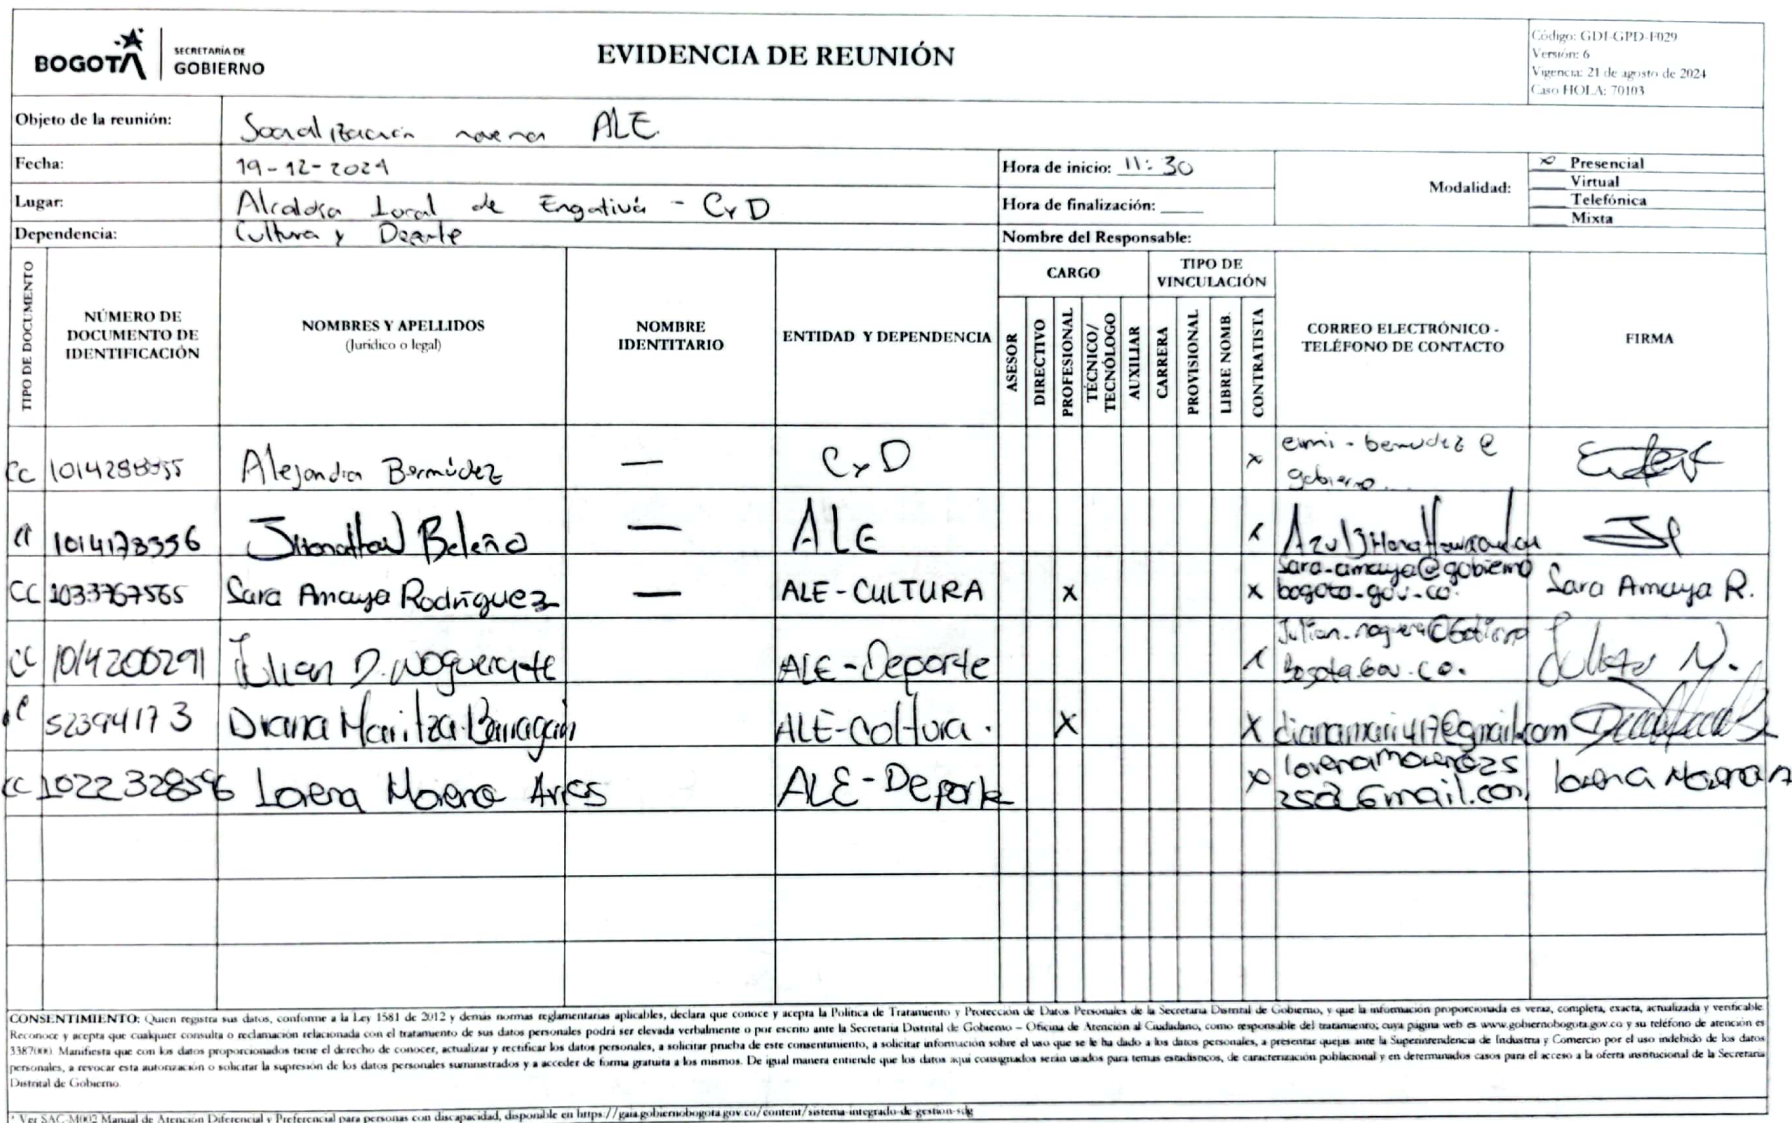 BOGOTÁ
SECRETARÍA DE
GOBIERNO
EVIDENCIA DE REUNIÓN
Código: GDI-GPD-F029
Versión: 6
Vigencia: 21 de agosto de 2024
Caso HOLA: 70103
Objeto de la reunión: Socialización novena ALE
Fecha: 19-12-2024
Hora de inicio: 11:30
Modalidad:
x Presencial
Virtual
Telefónica
Mixta
Lugar: Alcaldía Local de Engativá - CyD
Hora de finalización:
Dependencia: Cultura y
Nombre del Responsable:
TIPO DE DOCUMENTO
NÚMERO DE DOCUMENTO DE IDENTIFICACIÓN
NOMBRES Y APELLIDOS
(Jurídico o legal)
NOMBRE IDENTITARIO
ENTIDAD Y DEPENDENCIA
CARGO
ASESOR
DIRECTIVO
PROFESIONAL
TÉCNICO/ TECNÓLOGO
AUXILIAR
TIPO DE VINCULACIÓN
CARRERA
PROVISIONAL
LIBRE NOMB.
CONTRATISTA
CORREO ELECTRÓNICO - TELÉFONO DE CONTACTO
FIRMA
CC Alejandra Bermúdez — CyD x @ gobierno
1014178356 Jhonathan Beleño — ALE x
CC 1033767565 Sara Amaya Rodríguez — ALE-CULTURA x x sara.amaya@gobierno
bogota.gov.co. Sara Amaya R.
CC 1014200291 Julian D. ALE-Deporte x Julian.noguera@Gobierno
Bogota.Gov.co.
52394173 Diana Maritza Barragán ALE-Cultura. X X dianamari417@gmail.com
CC 1022328596 Lorena Moreno ALE-Deporte x lorenamoreno25
25@Gmail.com Lorena Moreno A
CONSENTIMIENTO: Quien registra sus datos, conforme a la Ley 1581 de 2012 y demás normas reglamentarias aplicables, declara que conoce y acepta la Política de Tratamiento y Protección de Datos Personales de la Secretaría Distrital de Gobierno, y que la información proporcionada es veraz, completa, exacta, actualizada y verificable.
Reconoce y acepta que cualquier consulta o reclamación relacionada con el tratamiento de sus datos personales podrá ser elevada verbalmente o por escrito ante la Secretaría Distrital de Gobierno – Oficina de Atención al Ciudadano, como responsable del tratamiento; cuya página web es www.gobiernobogota.gov.co y su teléfono de atención es
3387000. Manifiesta que con los datos proporcionados tiene el derecho de conocer, actualizar y rectificar los datos personales, a solicitar prueba de este consentimiento, a solicitar información sobre el uso que se le ha dado a los datos personales, a presentar quejas ante la Superintendencia de Industria y Comercio por el uso indebido de los datos
personales, a revocar esta autorización o solicitar la supresión de los datos personales suministrados y a acceder de forma gratuita a los mismos. De igual manera entiende que los datos aquí consignados serán usados para temas estadísticos, de caracterización poblacional y en determinados casos para el acceso a la oferta institucional de la Secretaría
Distrital de Gobierno.
* Ver SAC-M002 Manual de Atención Diferencial y Preferencial para personas con discapacidad, disponible en https://gaia.gobiernobogota.gov.co/content/sistema-integrado-de-gestion-sdg